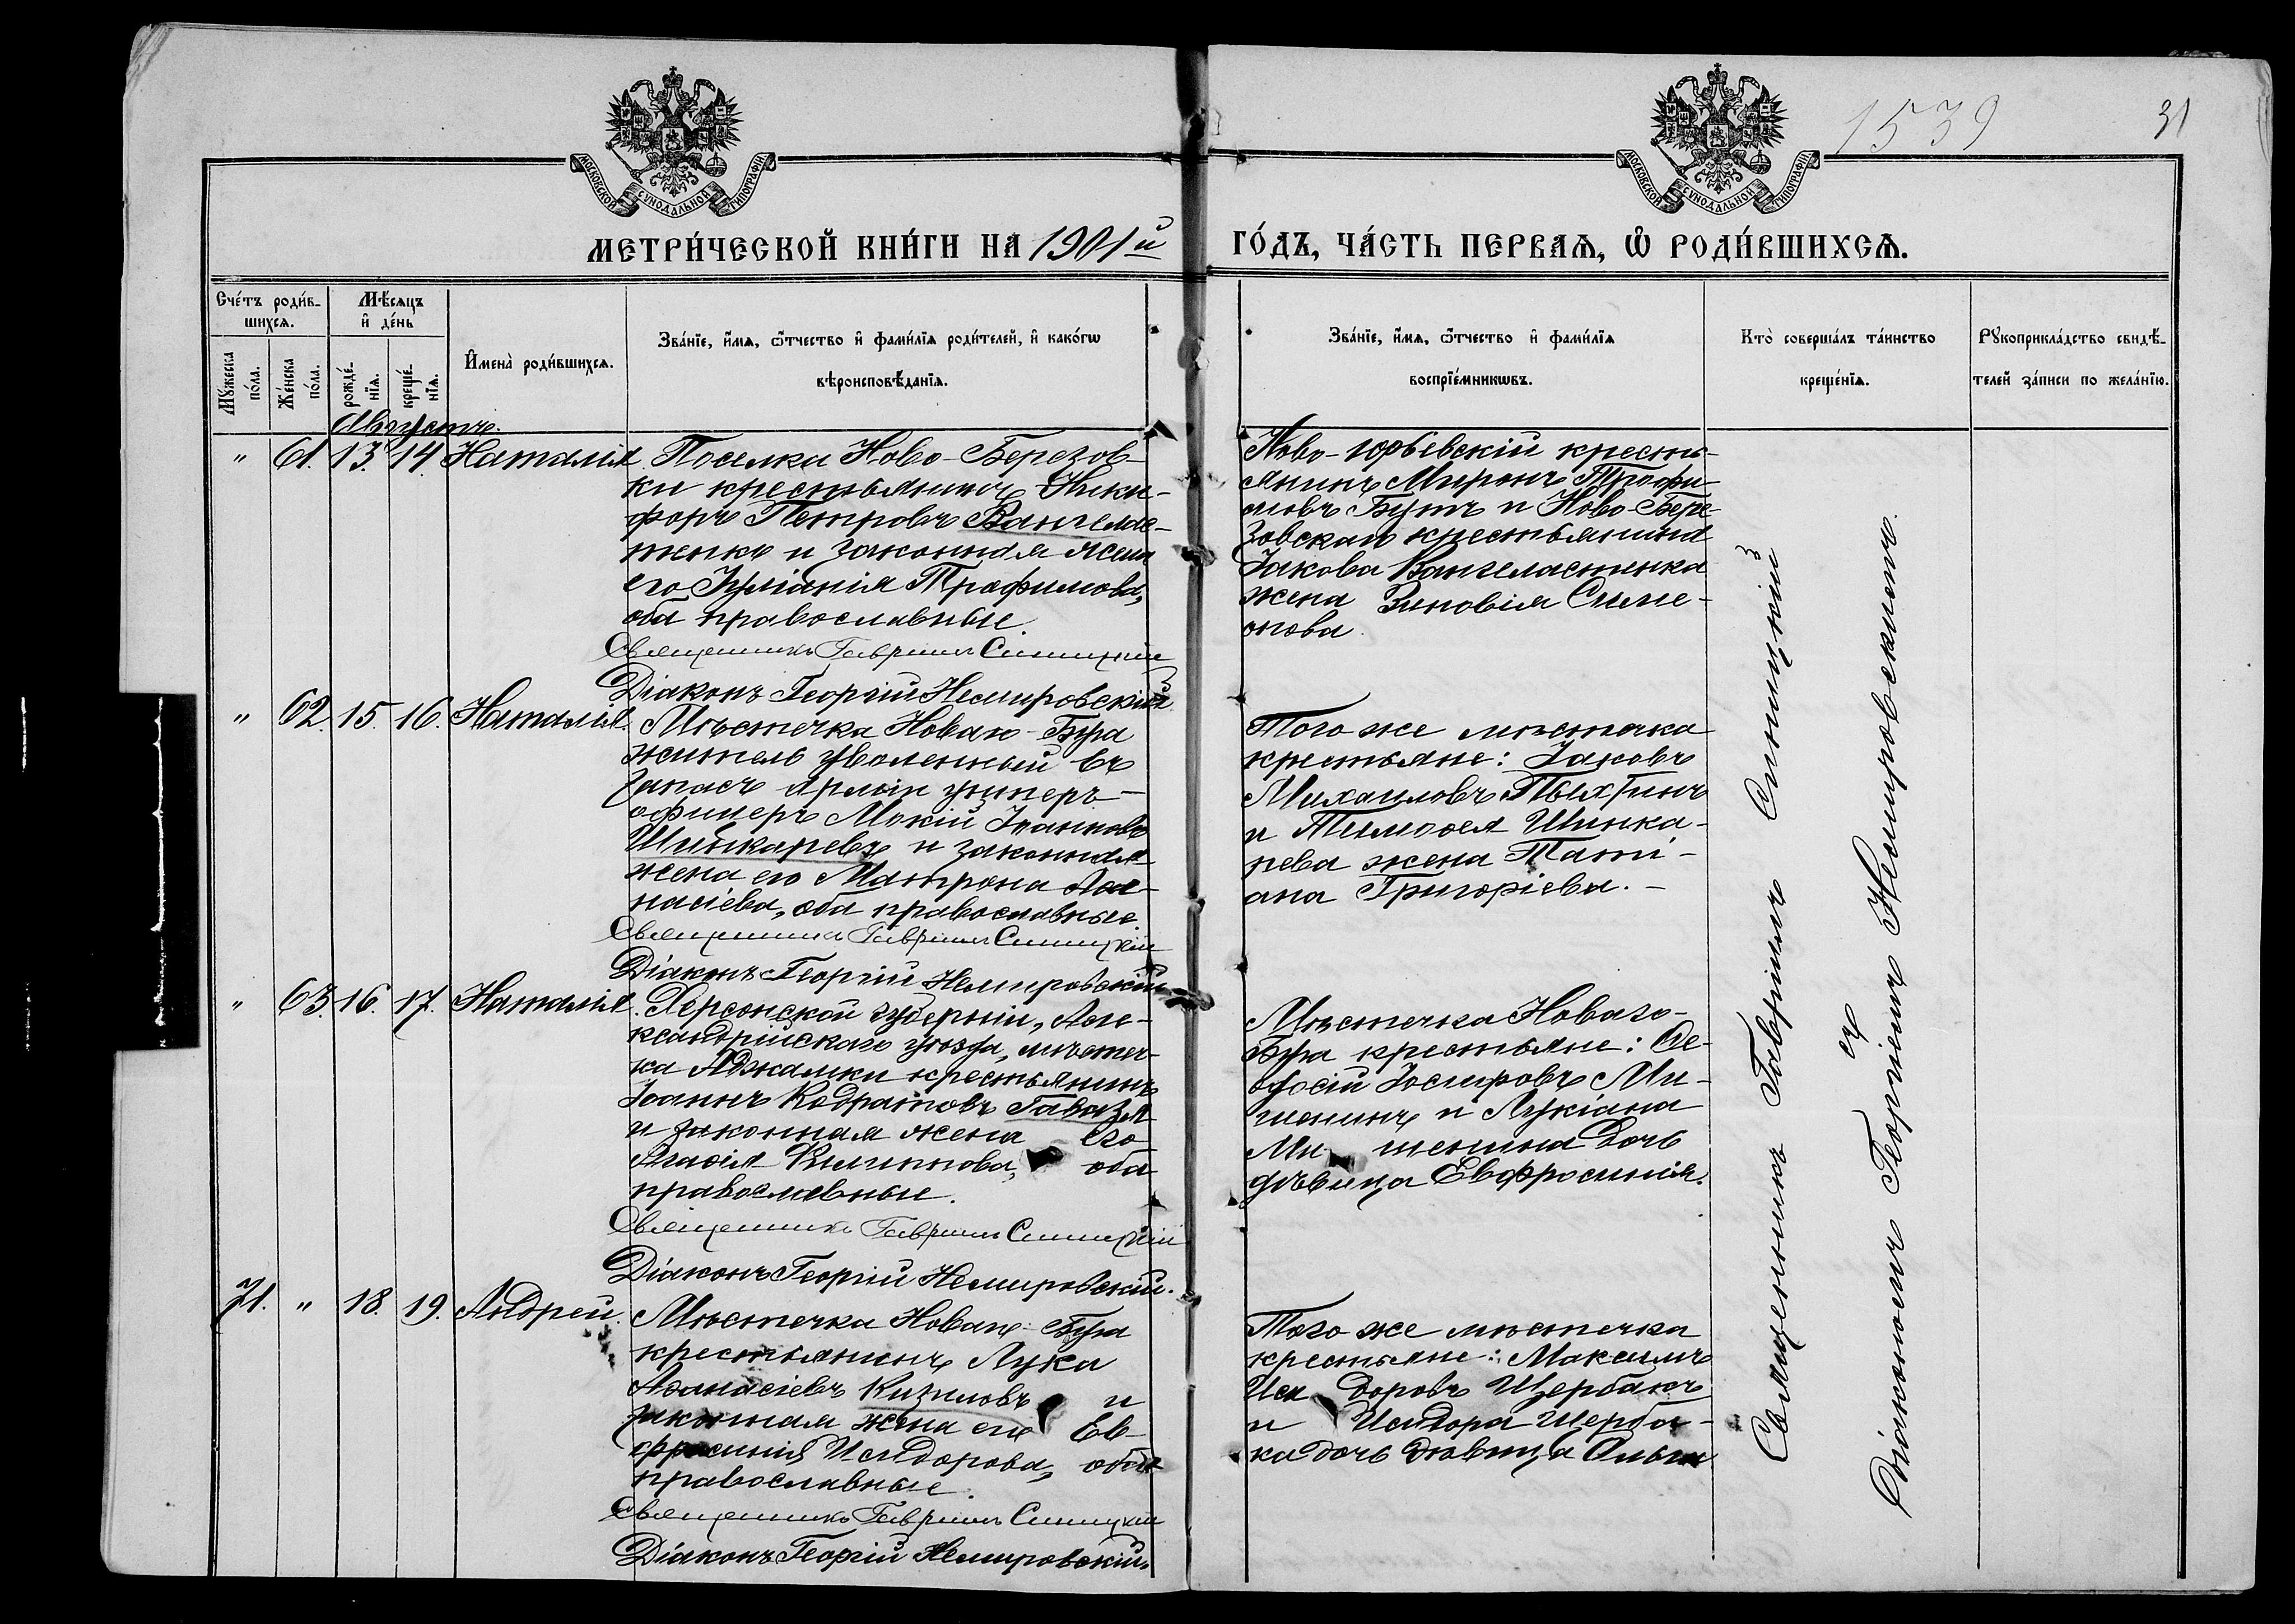 1539
31
МОСКОВСКОЙ СѴНОДАЛЬНОЙ ТИПОГРАФІИ
МОСКОВСКОЙ СѴНОДАЛЬНОЙ ТИПОГРАФІИ
МЕТРИ́ЧЕСКОЙ КНИ́ГИ НА 1901й ГО́ДЪ, ЧА́СТЬ ПЕРВАѦ, Ѡ҆ РОДИ́ВШИХСѦ.
Сче́тъ роди́в-
шихсѧ.
Мѣ́сѧцъ
и҆ де́нь
Мꙋ́жеска
по́ла.
Же́нска
по́ла.
рожде́-
нїѧ.
креще́-
нїѧ.
И҆мена̀ роди́вшихсѧ.
Зва́нїе, и҆́мѧ, ѻ҆́тчество и҆ фами́лїѧ роди́телей, и҆ како́гѡ
вѣроисповѣ́данїѧ.
Зва́нїе, и҆́мѧ, ѻ҆́тчество и҆ фами́лїѧ
воспрїе́мникѡвъ.
Кто̀ соверша́лъ та́инство
креще́нїѧ.
Рꙋкоприкла́дство свидѣ́-
телей за́писи по жела́нїю.
Августъ.
" 61. 13. 14. Наталія.
Поселка Ново-Березов-
ки крестьянинъ Ники-
форъ Петровъ Вангелас-
тенко и законная жена
его Іуліанія Трофимова,
оба православные.
Священникъ Гавріилъ Синицкій
Діаконъ Георгій Немировскій
Ново-Юрьевскій кресть-
янинъ Миронъ Трофи-
мовъ Бутъ и Ново-Бере-
зовскаго крестьянина
Іакова Вангеластенка
жена Зиновія Симе-
онова.
" 62. 15. 16. Наталія.
Мѣстечка Новаго-Буга
житель уволенный въ
запасъ арміи унтеръ-
офицеръ Мокій Іоанновъ
Шинкаревъ и законная
жена его Матрона Аѳа-
насіева, оба православные.
Священникъ Гавріилъ Синицкій
Діаконъ Георгій Немировскій
Того же мѣстечка
крестьяне: Іаковъ
Михаиловъ Пыхтинъ
и Тимоѳея Шинка-
рева жена Таті-
ана Григоріева.-
" 63. 16. 17. Наталія.
Херсонской губерніи, Але-
ксандрійскаго уѣзда, мѣстеч-
ка Аджамки крестьянинъ
Іоаннъ Кодратовъ Гавазя
и законная жена его
Агаѳія Филиппова, оба
православные.
Священникъ Гавріилъ Синицкій
Діаконъ Георгій Немировскій.
Мѣстечка Новаго-
Буга крестьяне: Ѳе-
одосій Ми-
шенинъ и Лукіана
Ми шенина дочь
дѣвица Евфросинія.
71. " 18. 19. Андрей.
Мѣстечка Новаго-Буга
крестьянинъ Лука
Аѳанасіевъ Кизиловъ и
законная жена его Ев-
фросинія Исидорова, оба
православные.
Священникъ Гавріилъ Синицкій
Діаконъ Георгій Немировскій.
Того же мѣстечка
крестьяне: Максимъ
Иси доровъ Щербакъ
и Исидора Щерба-
ка дочь дѣвица Ольга
Священникъ Гавріилъ Синицкій
съ
Діакономъ Георгіемъ Немировскимъ.